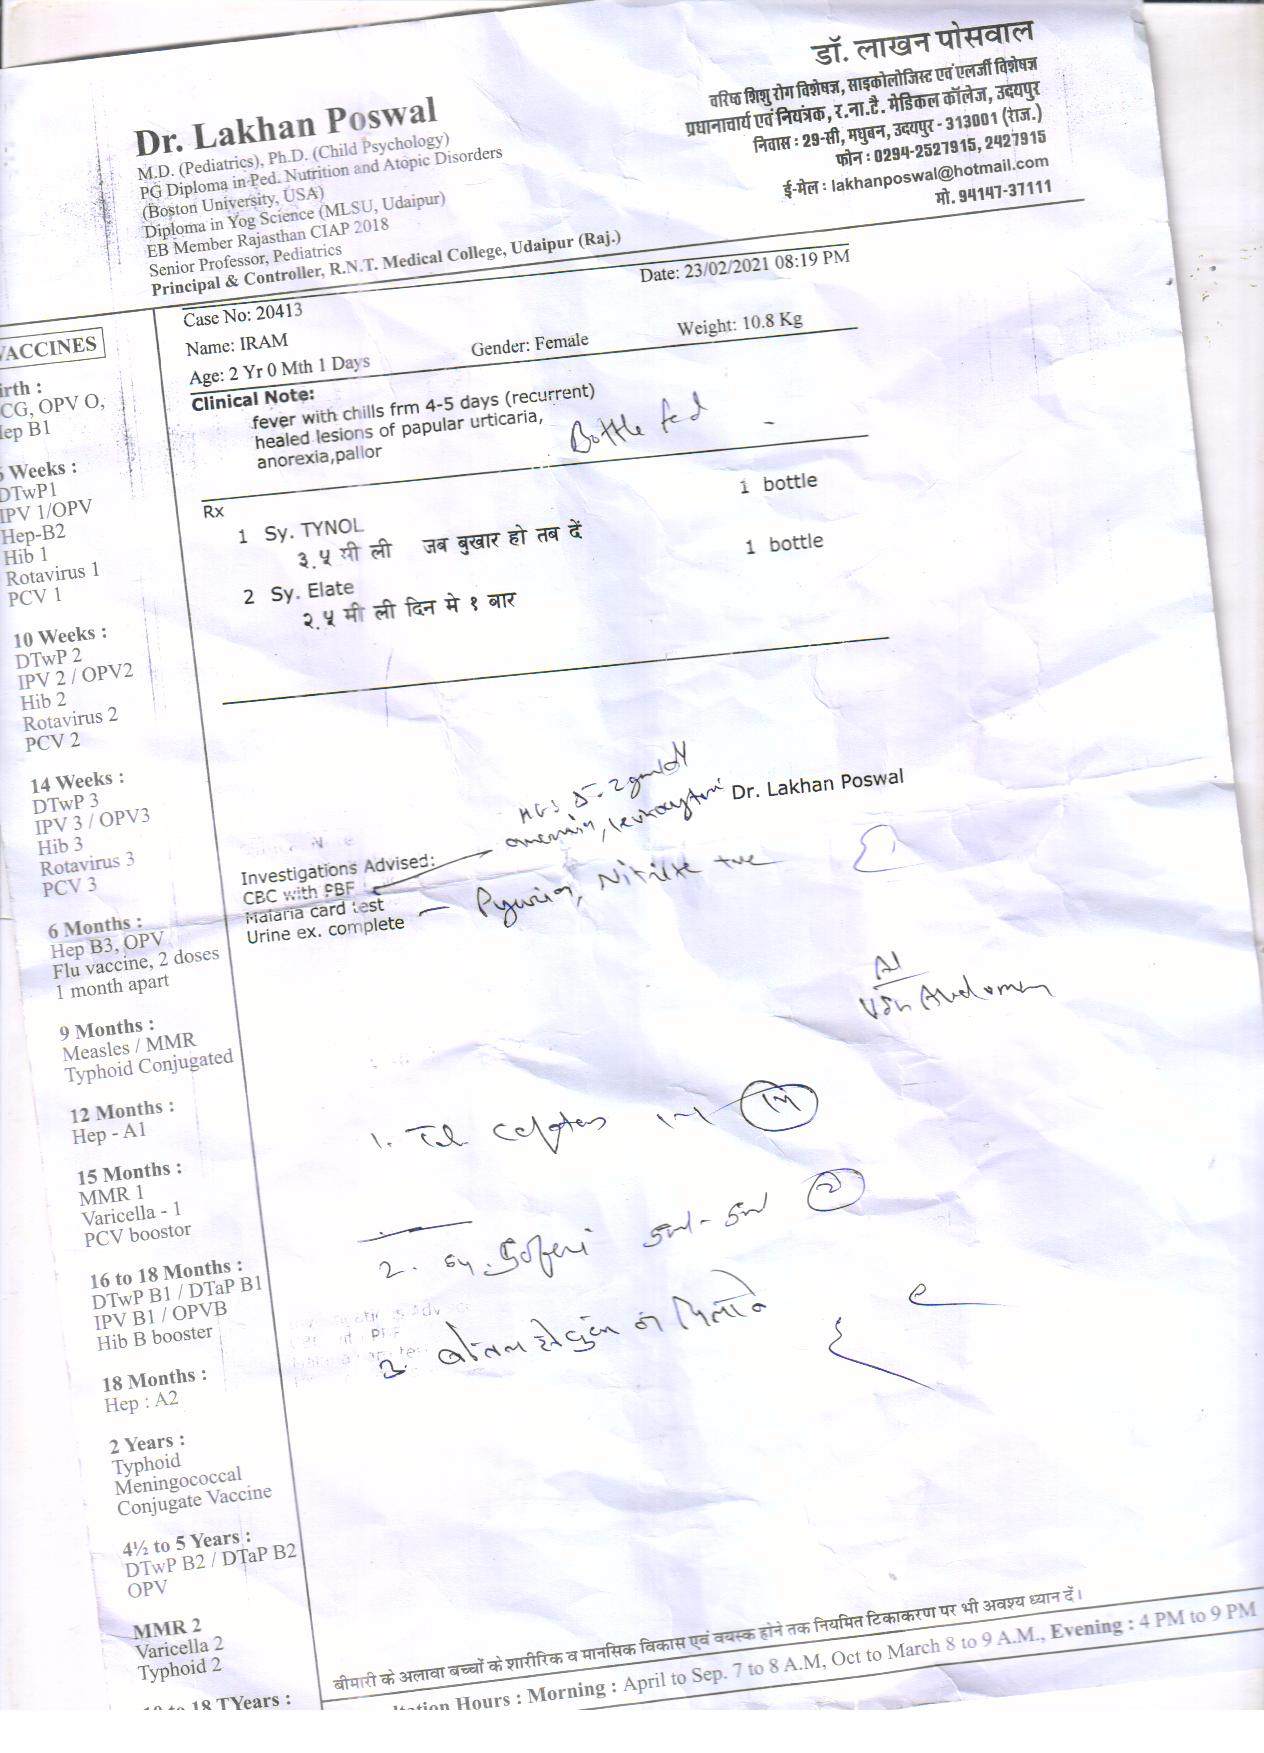 Dr. Lakhan Poswal
M.D. (Pediatrics), Ph.D. (Child Psychology)
PG Diploma in Ped. Nutrition and Atopic Disorders
(Boston University, USA)
Diploma in Yog Science (MLSU, Udaipur)
EB Member Rajasthan CIAP 2018
Senior Professor, Pediatrics
Principal & Controller, R.N.T. Medical College, Udaipur (Raj.)
डॉ. लाखन पोसवाल
वरिष्ठ शिशु रोग विशेषज्ञ, साइकोलोजिस्ट एवं एलर्जी विशेषज्ञ
प्रधानाचार्य एवं नियंत्रक, र.ना.टै. मेडिकल कॉलेज, उदयपुर
निवास : 29-सी, मधुबन, उदयपुर - 313001 (राज.)
फोन : 0294-2527915, 2427915
ई-मेल : lakhanposwal@hotmail.com
मो. 94147-37111
Case No: 20413
Date: 23/02/2021 08:19 PM
Name: IRAM
Gender: Female
Weight: 10.8 Kg
Age: 2 Yr 0 Mth 1 Days
Clinical Note:
fever with chills frm 4-5 days (recurrent)
healed lesions of papular urticaria,
anorexia,pallor
Bottle fed
Rx
1 Sy. TYNOL 1 bottle
३.५ मी ली जब बुखार हो तब दें
2 Sy. Elate 1 bottle
२.५ मी ली दिन मे १ बार
Dr. Lakhan Poswal
Investigations Advised:
CBC with PBF
Malaria card test
Urine ex. complete
Pyuria, Nitrite +ve
Abdomen
1.
2. Sy.
3. बोतल से दूध न पिलावे
VACCINES
irth :
CG, OPV O,
Hep B1
6 Weeks :
DTwP1
IPV 1/OPV
Hep-B2
Hib 1
Rotavirus 1
PCV 1
10 Weeks :
DTwP 2
IPV 2 / OPV2
Hib 2
Rotavirus 2
PCV 2
14 Weeks :
DTwP 3
IPV 3 / OPV3
Hib 3
Rotavirus 3
PCV 3
6 Months :
Hep B3, OPV
Flu vaccine, 2 doses
1 month apart
9 Months :
Measles / MMR
Typhoid Conjugated
12 Months :
Hep - A1
15 Months :
MMR 1
Varicella - 1
PCV boostor
16 to 18 Months :
DTwP B1 / DTaP B1
IPV B1 / OPVB
Hib B booster
18 Months :
Hep : A2
2 Years :
Typhoid
Meningococcal
Conjugate Vaccine
4½ to 5 Years :
DTwP B2 / DTaP B2
OPV
MMR 2
Varicella 2
Typhoid 2
18 TYears :
बीमारी के अलावा बच्चों के शारीरिक व मानसिक विकास एवं वयस्क होने तक नियमित टिकाकरण पर भी अवश्य ध्यान दें।
ltation Hours : Morning : April to Sep. 7 to 8 A.M, Oct to March 8 to 9 A.M., Evening : 4 PM to 9 PM